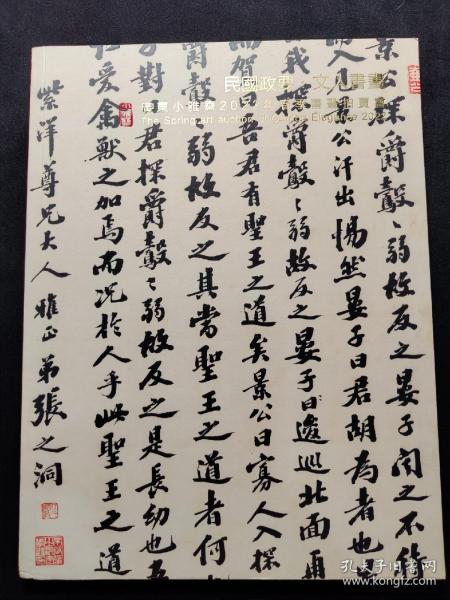 民國政要·文人書畫
廣東小雅齋2022年春季書畫拍賣會
The Spring art auction of Centre Elegance 2022
景公探爵鷇〻弱故反之晏子聞之不待
入見公汗出惕然晏子曰君胡為者也
我探爵鷇〻弱故反之晏子曰逡巡北面再
而賀吾君有聖王之道矣景公曰寡人入探
爵鷇〻弱故反之其當聖王之道者何
子對君探爵鷇〻弱故反之是長幼也吾
仁愛禽獸之加焉而況於人乎此聖王之道
紫洋尊兄大人雅正弟張之洞
孔夫子旧书网
book.kongfz.com